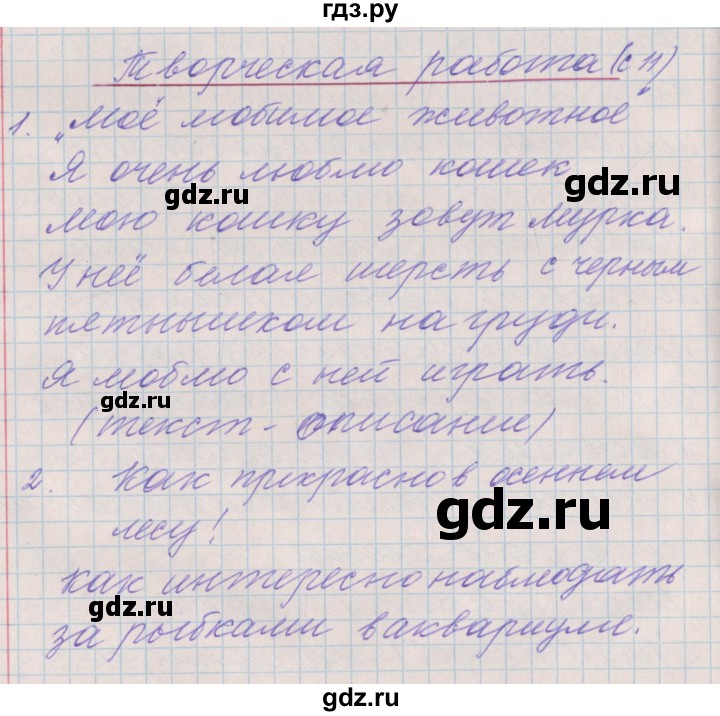 гдз.ру
Творческая работа (с 11)
1. „Моё любимое животное"
Я очень люблю кошек
gdz.ru
gdz.ru
мою кошку зовут Мурка.
У неё белая шерсть с черным
gdz.ru
пятнышком на груди.
gdz.ru
Я люблю с ней играть.
gdz.ru
(текст - описание)
2. Как прекрасно в осеннем
gdz.ru
лесу!
Как интересно наблюдать
gdz.ru
за рыбками в аквариуме.
gdz.ru